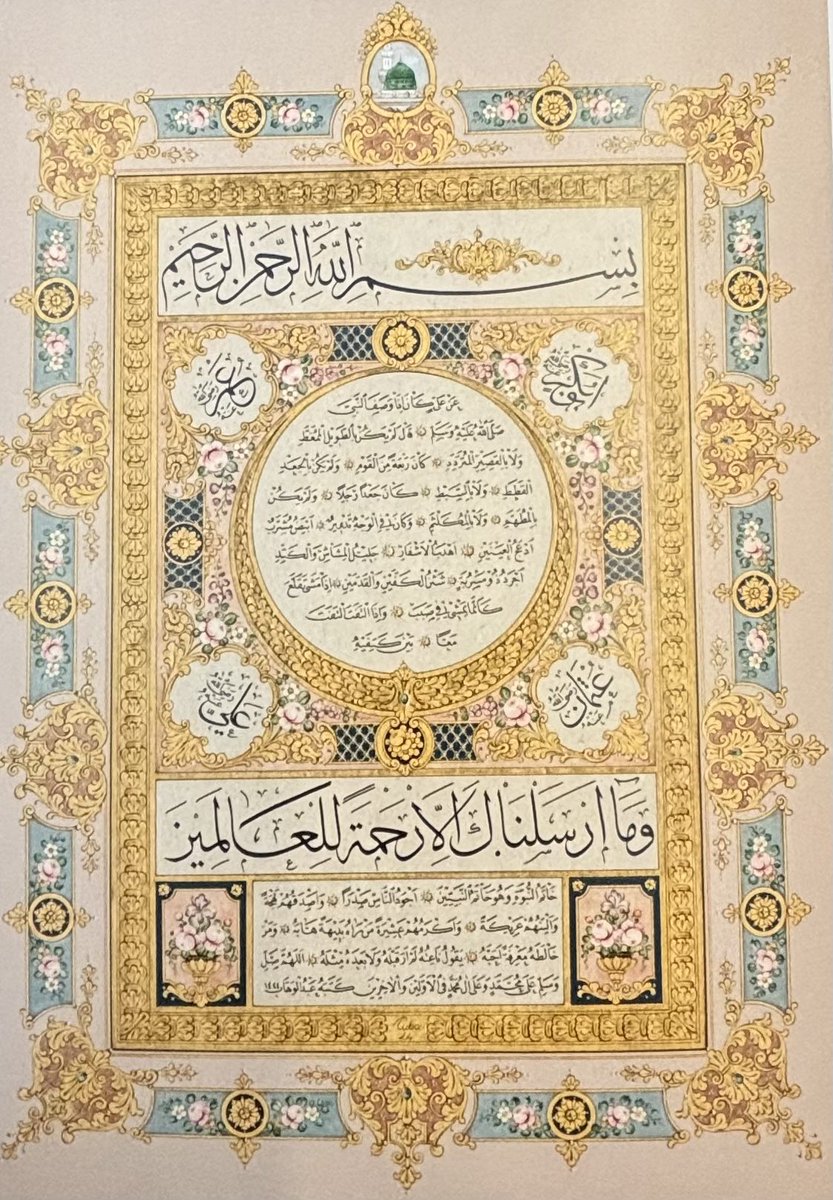 بِسْمِ اللّٰهِ الرَّحْمٰنِ الرَّحِيمِ
أبو بكر رضي الله عنه
عمر رضي الله عنه
عن علي كان اذا وصف النبي
صلى الله عليه وسلم قال لم يكن بالطويل الممغط
ولا بالقصير المتردد كان ربعة من القوم ولم يكن بالجعد
القطط ولا بالسبط كان جعدا رجلا ولم يكن
بالمطهم ولا بالمكلثم وكان في الوجه تدوير ابيض مشرب
ادعج العينين اهدب الاشفار جليل المشاش والكتد
اجرد ذو مسربة شثن الكفين والقدمين اذا مشى تقلع
كانما يمشي في صبب واذا التفت التفت
معا بين كتفيه
عثمان رضي الله عنه
علي رضي الله عنه
وَمَا اَرْسَلْنَاكَ اِلَّا رَحْمَةً لِلْعَالَمِينَ
خاتم النبوة وهو خاتم النبيين اجود الناس صدرا واصدقهم لهجة
والينهم عريكة واكرمهم عشيرة من راه بديهة هابه ومن
خالطه معرفة احبه يقول ناعته لم ار قبله ولا بعده مثله اللهم صل
وسلم على محمد وعلى ال محمد في الاولين والاخرين كتبه عبد الوهاب